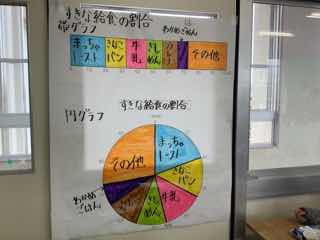 すきな給食の割合
帯グラフ
わかめごはん
まっちゃ
トースト
きなこ
パン
牛
乳
きし
めん
その他
すきな給食の割合
円グラフ
まっちゃ
トースト
きなこ
パン
牛乳
きし
めん
わかめ
ごはん
その他